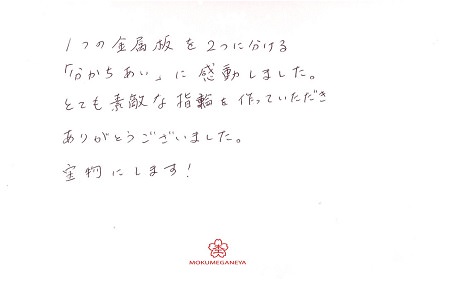 1つの金属板を2つに分ける
「分かちあい」に感動しました。
とても素敵な指輪を作っていただき
ありがとうございました。
宝物にします!
MOKUMEGANEYA